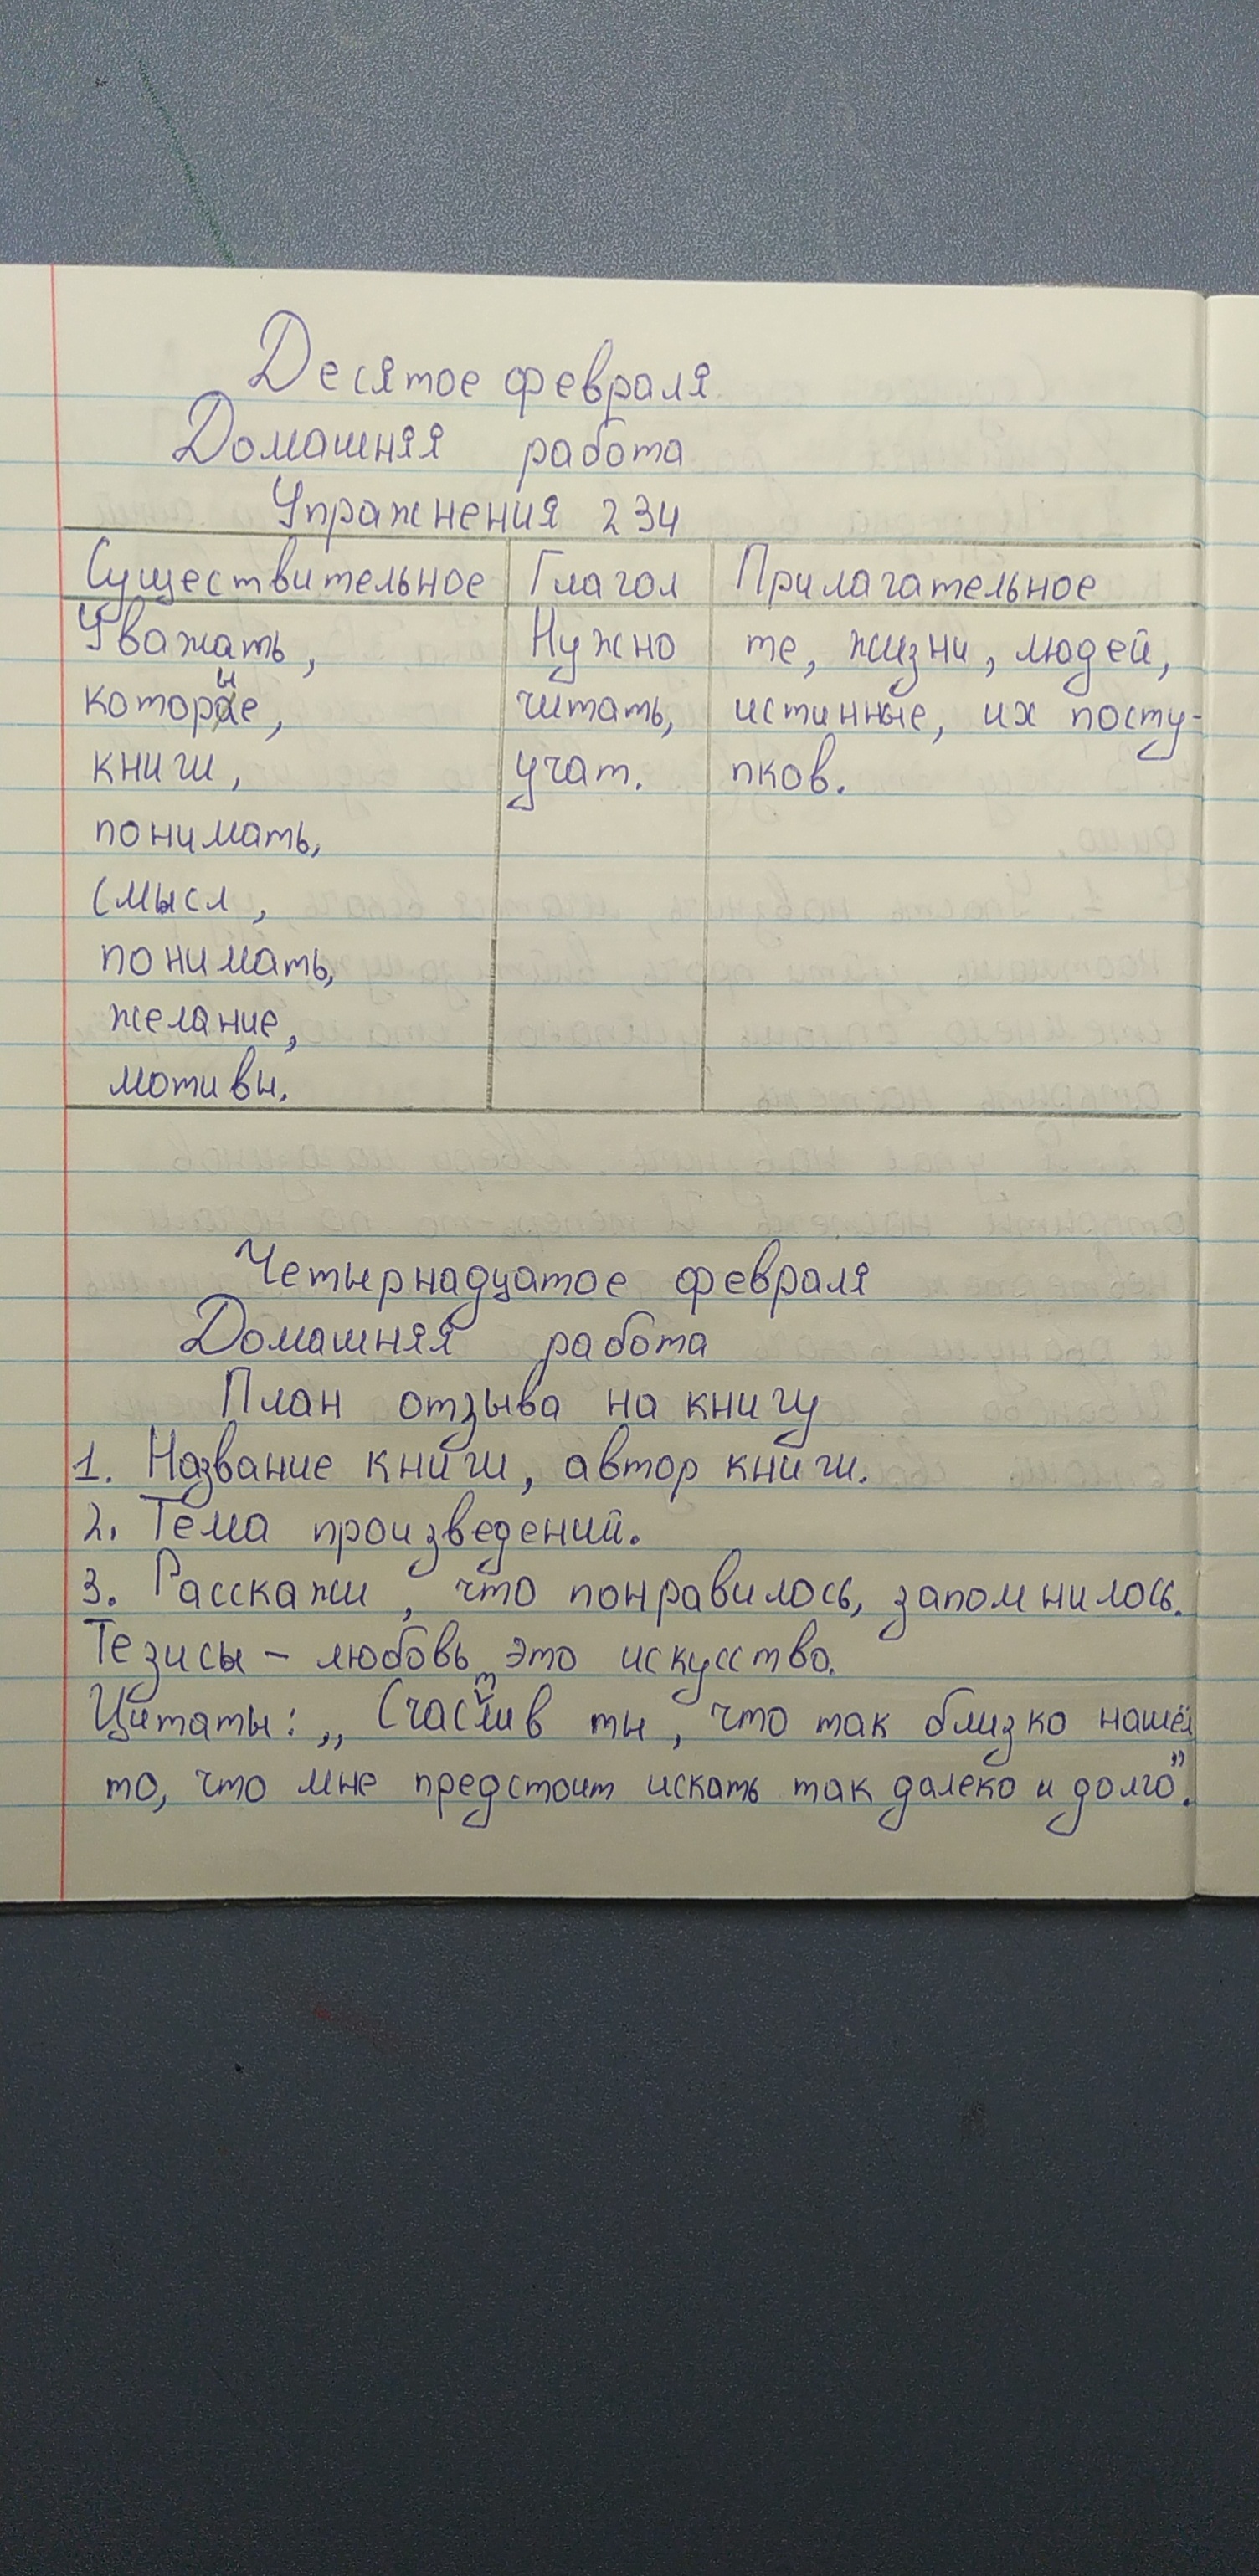 Десятое февраля
Домашняя работа
Упражнения 234
Существительное Глагол Прилагательное
Уважать, Нужно те, жизни, людей,
которые, читать, истинные, их посту-
книги, учат. пков.
понимать,
смысл,
понимать,
желание,
мотивы.
Четырнадцатое февраля
Домашняя работа
План отзыва на книгу
1. Название книги, автор книги.
2. Тема произведений.
3. Расскажи, что понравилось, запомнилось.
Тезисы – любовь это искусство.
Цитаты: „Счастлив ты, что так близко нашёл
то, что мне предстоит искать так далеко и долго".